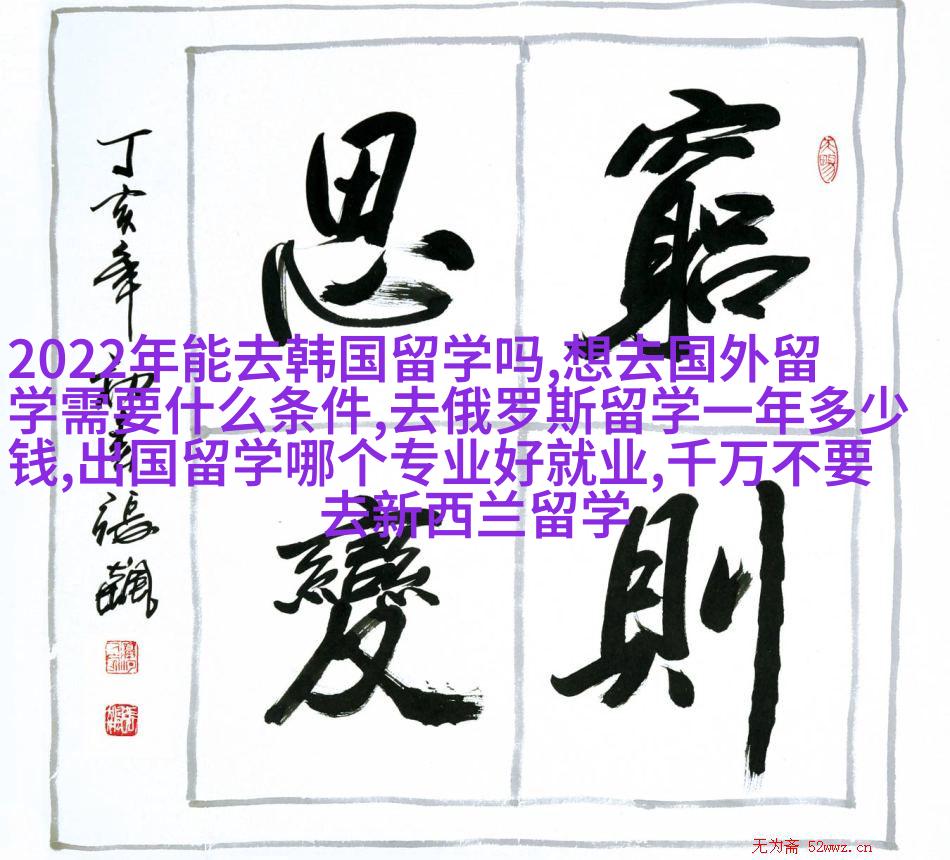 窮則
思變
丁亥年
張飆
2022年能去韩国留学吗,想去国外留
学需要什么条件,去俄罗斯留学一年多少
钱,出国留学哪个专业好就业,千万不要
去新西兰留学
无为斋 52wwz.cn